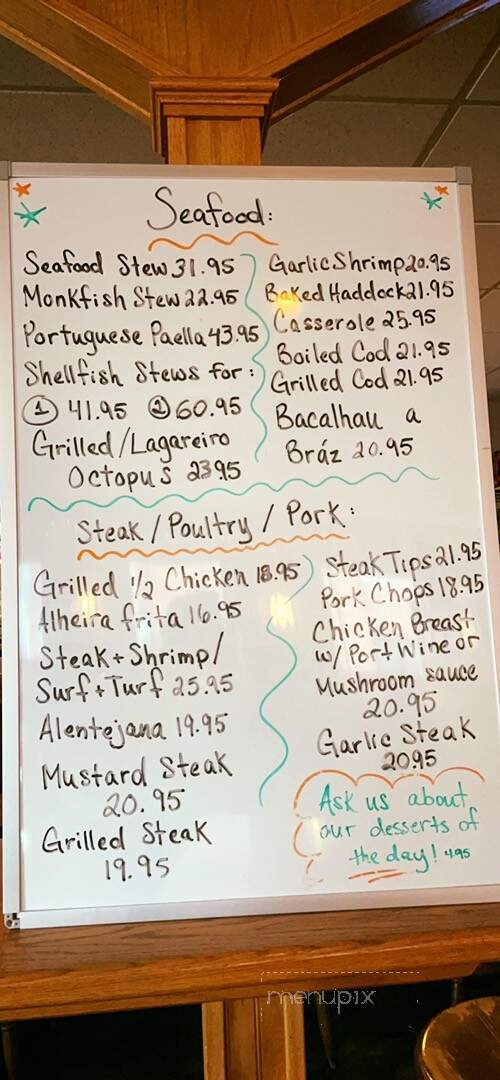 Seafood:
Seafood Stew 31.95
Monkfish Stew 22.95
Portuguese Paella 43.95
Shellfish Stews for:
① 41.95 ② 60.95
Grilled/Lagareiro
Octopus 23.95
Garlic Shrimp 20.95
Baked Haddock 21.95
Casserole 25.95
Boiled Cod 21.95
Grilled Cod 21.95
Bacalhau a
Bráz 20.95
Steak/Poultry/Pork:
Grilled 1/2 Chicken 18.95
Alheira frita 16.95
Steak + Shrimp/
Surf + Turf 25.95
Alentejana 19.95
Mustard Steak
20.95
Grilled Steak
19.95
Steak Tips 21.95
Pork Chops 18.95
Chicken Breast
w/ Port Wine or
Mushroom sauce
20.95
Garlic Steak
2095
Ask us about
our desserts of
the day! 4.95
menupix